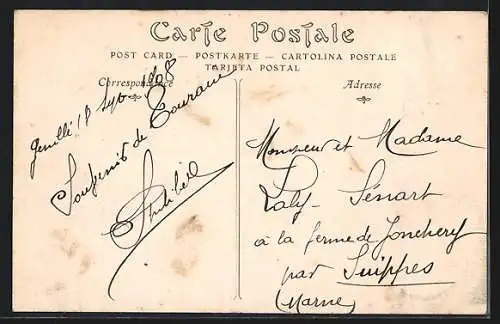 Carte Postale
POST CARD — POSTKARTE — CARTOLINA POSTALE
TARJETA POSTAL
Correspondance
Adresse
18 Sept 1908
Souvenir de Touraine
Monsieur et Madame
Laly-Sénart
à la ferme de Jonchery
par Suippes
(Marne)